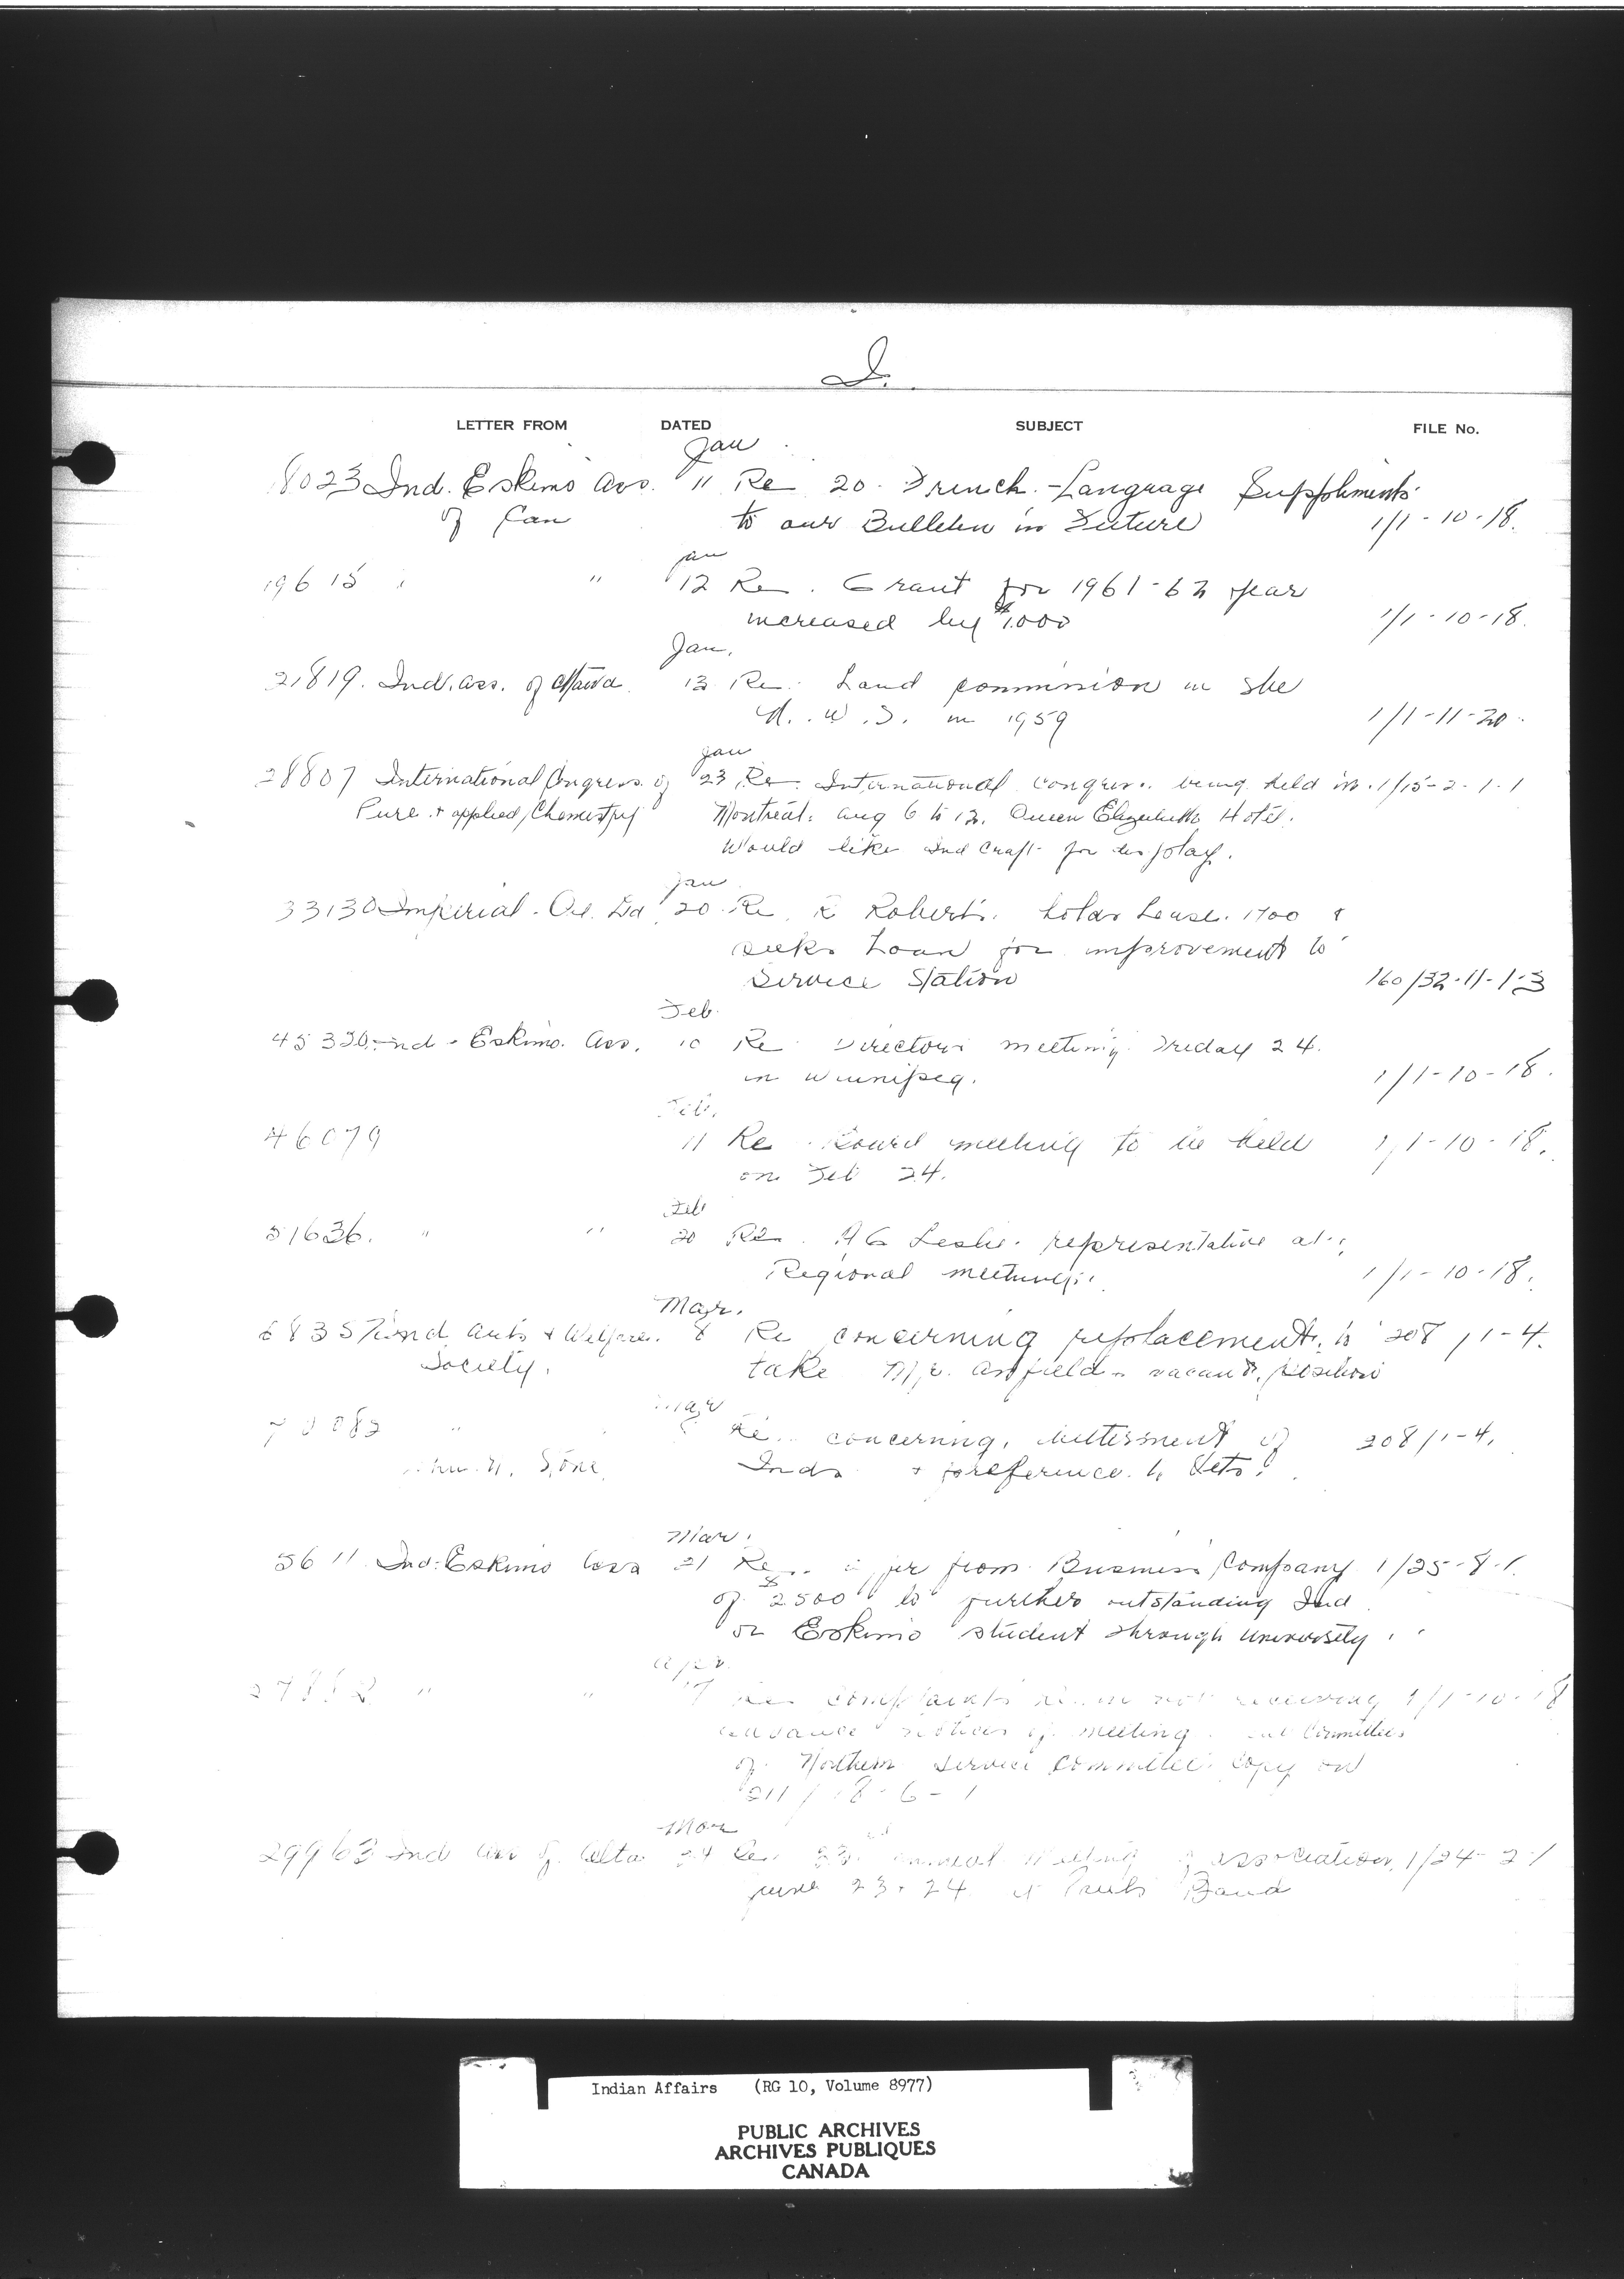 I.
LETTER FROM DATED SUBJECT FILE No.
Jan
18023 Ind. Eskimo Ass. 11 Re 20 French-Language Suppliments
of Can to our Bulletin in Future 1/1-10-18.
Jan
19615 " " 12 Re. Grant for 1961-62 year
increased by $1.000 1/1-10-18.
Jan.
21819. Ind. Ass. of Ottawa 13 Re. Land commission in the
N.W.T. in 1959 1/1-11-20
Jan
28807 International Congress of 23 Re. International congress being held in 1/15-2-1-1
Pure + applied Chemestry Montreal. Aug 6 to 12. Queen Elizabeth Hotel.
Would like Ind Craft for display.
Jan
33130 Imperial Oil Ltd 20 Re. R Roberts. Lease 1700 &
seeks Loan for improvement to
Service Station 160/32-11-1-3
Feb.
45320 Ind-Eskimo. Ass. 10 Re Directors meeting Friday 24.
in Winnipeg. 1/1-10-18.
Feb.
46079 11 Re Board meeting to be held 1/1-10-18.
on Feb 24.
Feb
51636. " " 20 Re. H G Leslie representative at
Regional meeting. 1/1-10-18.
Mar.
68357 Ind Arts + Welfare. 8 Re concerning replacement to 208/1-4.
Society. take Mr. Anfield vacant position
Mar
70082 " 8 Re. concerning, betterment of 208/1-4.
Inds + preference to Vets.
Mar.
5611 Ind. Eskimo Ass 21 Re. offer from Business Company 1/25-8-1.
of $2500 to further outstanding Ind
or Eskimo student through University.
Apr.
" " 17 Re complaints not receiving 1/1-10-18
advance notices of meeting. Committees
of Northern Service Committee. Copy on
211/18-6-1
Mar
29963 Ind Ass of Alta 24 Re. 23rd annual meeting of association, 1/24-2-1
June 23 + 24 at Band
Indian Affairs (RG 10, Volume 8977)
PUBLIC ARCHIVES
ARCHIVES PUBLIQUES
CANADA